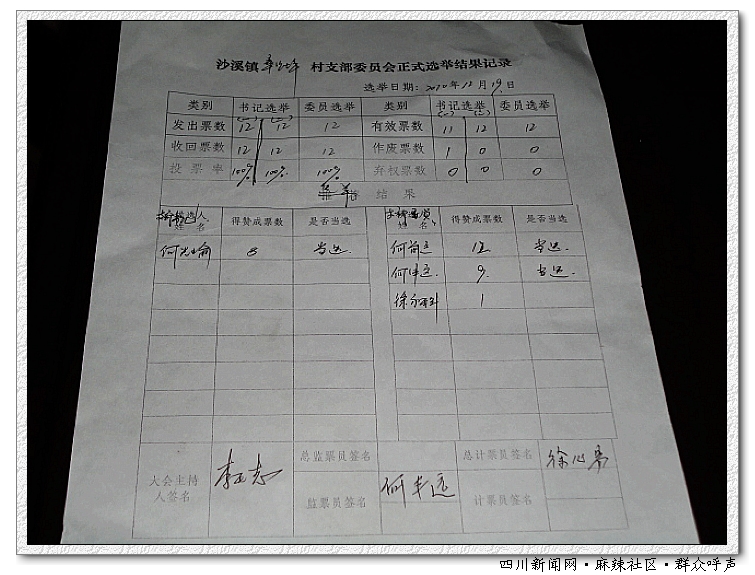 沙溪镇 村支部委员会正式选举结果记录
选举日期：2010年12月19日
类别 书记选举 委员选举 类别 书记选举 委员选举
(一) (二) (一) (二)
发出票数 12 12 12 有效票数 11 12 12
收回票数 12 12 12 作废票数 1 0 0
投票率 100% 100% 100% 弃权票数 0 0 0
结果
姓名 得赞成票数 是否当选 姓名 得赞成票数 是否当选
8 当选. 何前远 12 当选.
何中远 9. 当选.
1
大会主持人签名 李正志 总监票员签名 总计票员签名 徐心勇
监票员签名 何丰远 计票员签名
四川新闻网·麻辣社区·群众呼声